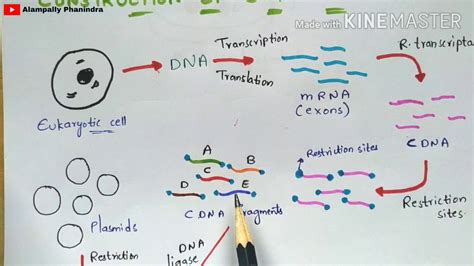 Alampally Phanindra
CONSTRUCTION OF
Made with KINEMASTER
Eukaryotic cell
DNA
Transcription
Translation
mRNA
(exons)
R. transcripta
CDNA
Restriction
sites
Restriction sites
A
B
C
D
E
CDNA fragments
Plasmids
Restriction
DNA
ligase